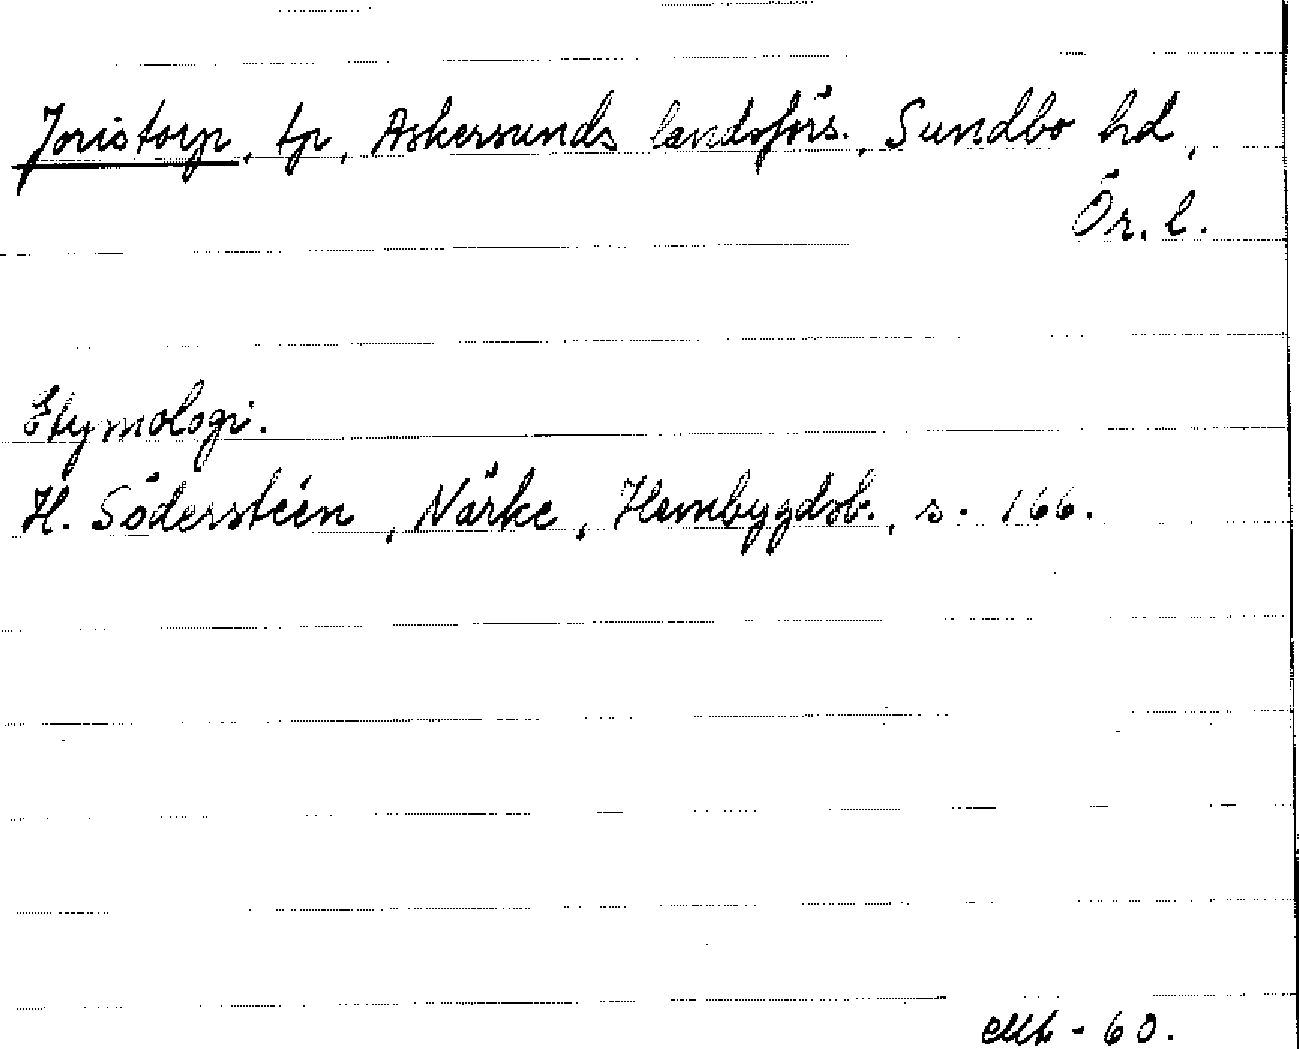 Joristorp, tp, Askersunds landsförs., Sundbo hd,
Ör. l.
Etymologi.
H. Söderstéen, Närke, Hembygdsb., s. 166.
-60.